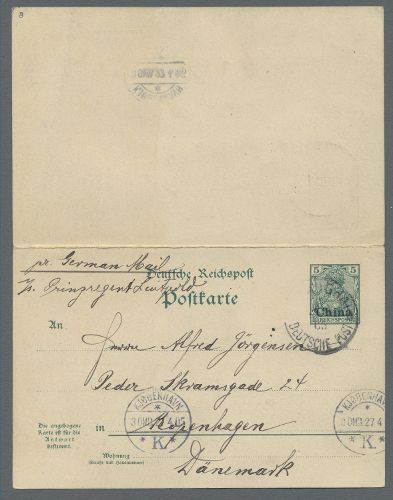 8
pr. German Mail
Deutsche Reichspost
p/s. Prinzregent Luitpold
Postkarte
5 5
China
REICHSPOST
DEUTSCHE POST
An
Herrn Alfred Jörgensen
Peder Skramsgade 24
KJØBENHAVN
K
KJØBENHAVN
K
Die angebogene
Karte ist für die
Antwort
bestimmt.
in Kopenhagen
Wohnung
(Straße und Hausnummer)
Dänemark